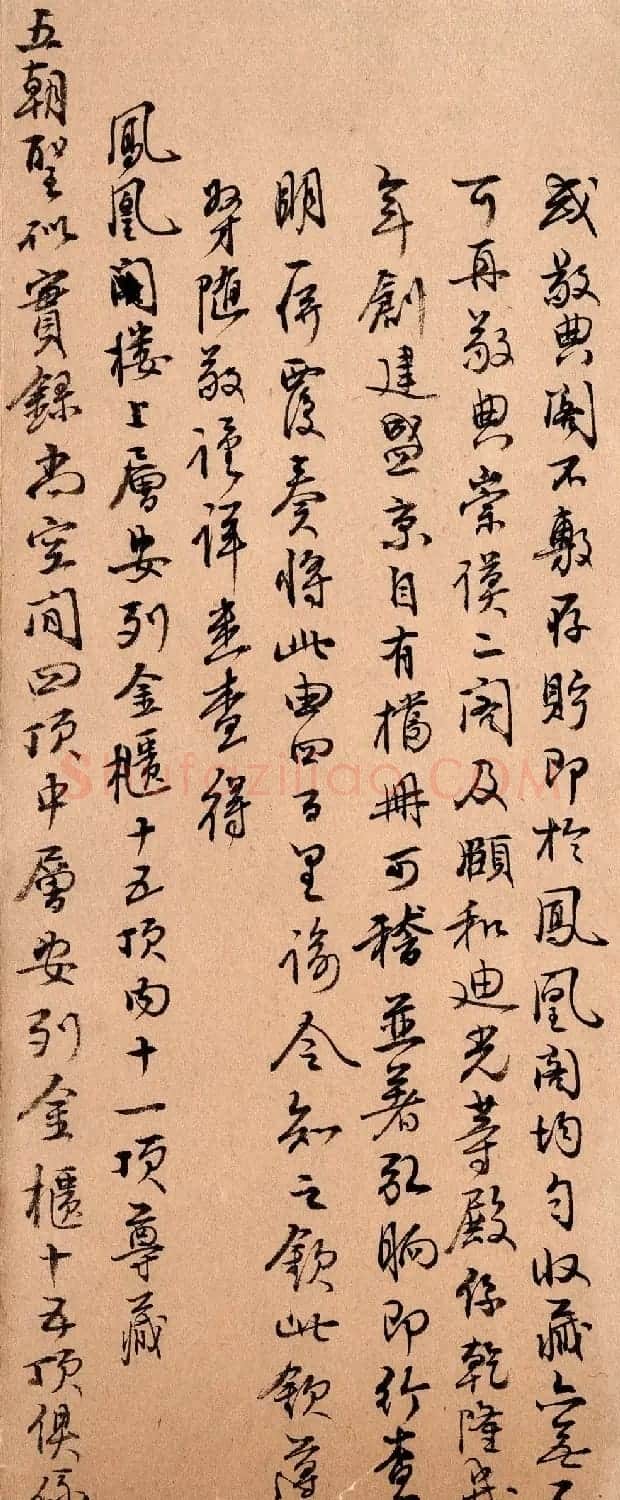 或敬典阁不敷存貯即於鳳凰阁均勻收藏亦無不
可再敬典崇謨二阁及頤和迪光等殿係乾隆
年創建盛京自有檔冊可稽並著弘晌即行查
明一併覆奏將此由四百里諭令知之欽此欽遵
奴才随敬謹詳悉查得
鳳凰阁楼上層安列金櫃十五頂内十一頂尊藏
五朝聖訓實錄尚空閒四頂中層安列金櫃十五頂俱係
Shufaziliao.COM